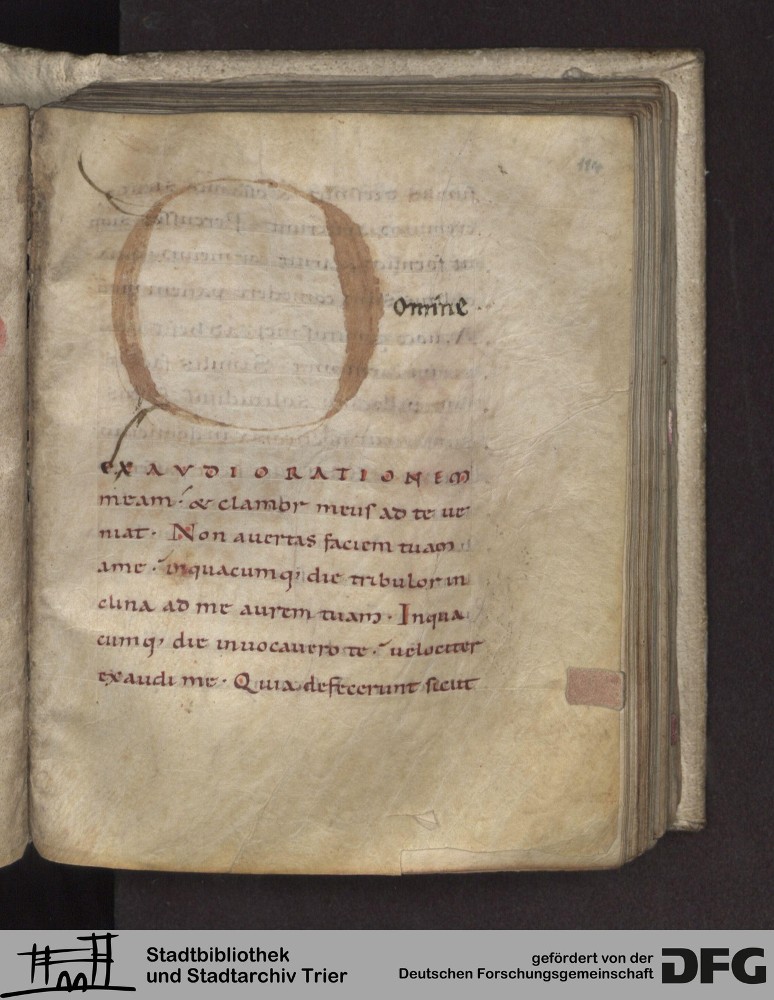 114
Domine
EXAUDI ORATIONEM
meam· & clamor meus ad te ue
niat· Non auertas faciem tuam
ame· inquacumq; die tribulor in
clina ad me aurem tuam· Inqua
cumq; die inuocauero te· uelociter
exaudi me· Quia defecerunt sicut
Stadtbibliothek
und Stadtarchiv Trier
gefördert von der
Deutschen Forschungsgemeinschaft
DFG